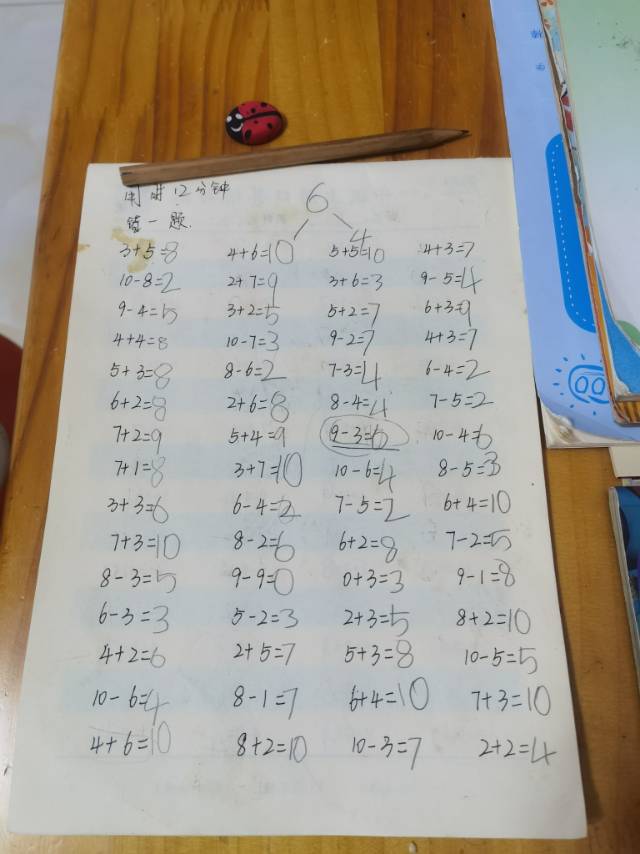 用时12分钟
错一题.
6
4
3+5=8 4+6=10 5+5=10 4+3=7
10-8=2 2+7=9 3+6=3 9-5=4
9-4=5 3+2=5 5+2=7 6+3=9
4+4=8 10-7=3 9-2=7 4+3=7
5+3=8 8-6=2 7-3=4 6-4=2
6+2=8 2+6=8 8-4=4 7-5=2
7+2=9 5+4=9 9-3=6 10-4=6
7+1=8 3+7=10 10-6=4 8-5=3
3+3=6 6-4=2 7-5=2 6+4=10
7+3=10 8-2=6 6+2=8 7-2=5
8-3=5 9-9=0 0+3=3 9-1=8
6-3=3 5-2=3 2+3=5 8+2=10
4+2=6 2+5=7 5+3=8 10-5=5
10-6=4 8-1=7 6+4=10 7+3=10
4+6=10 8+2=10 10-3=7 2+2=4